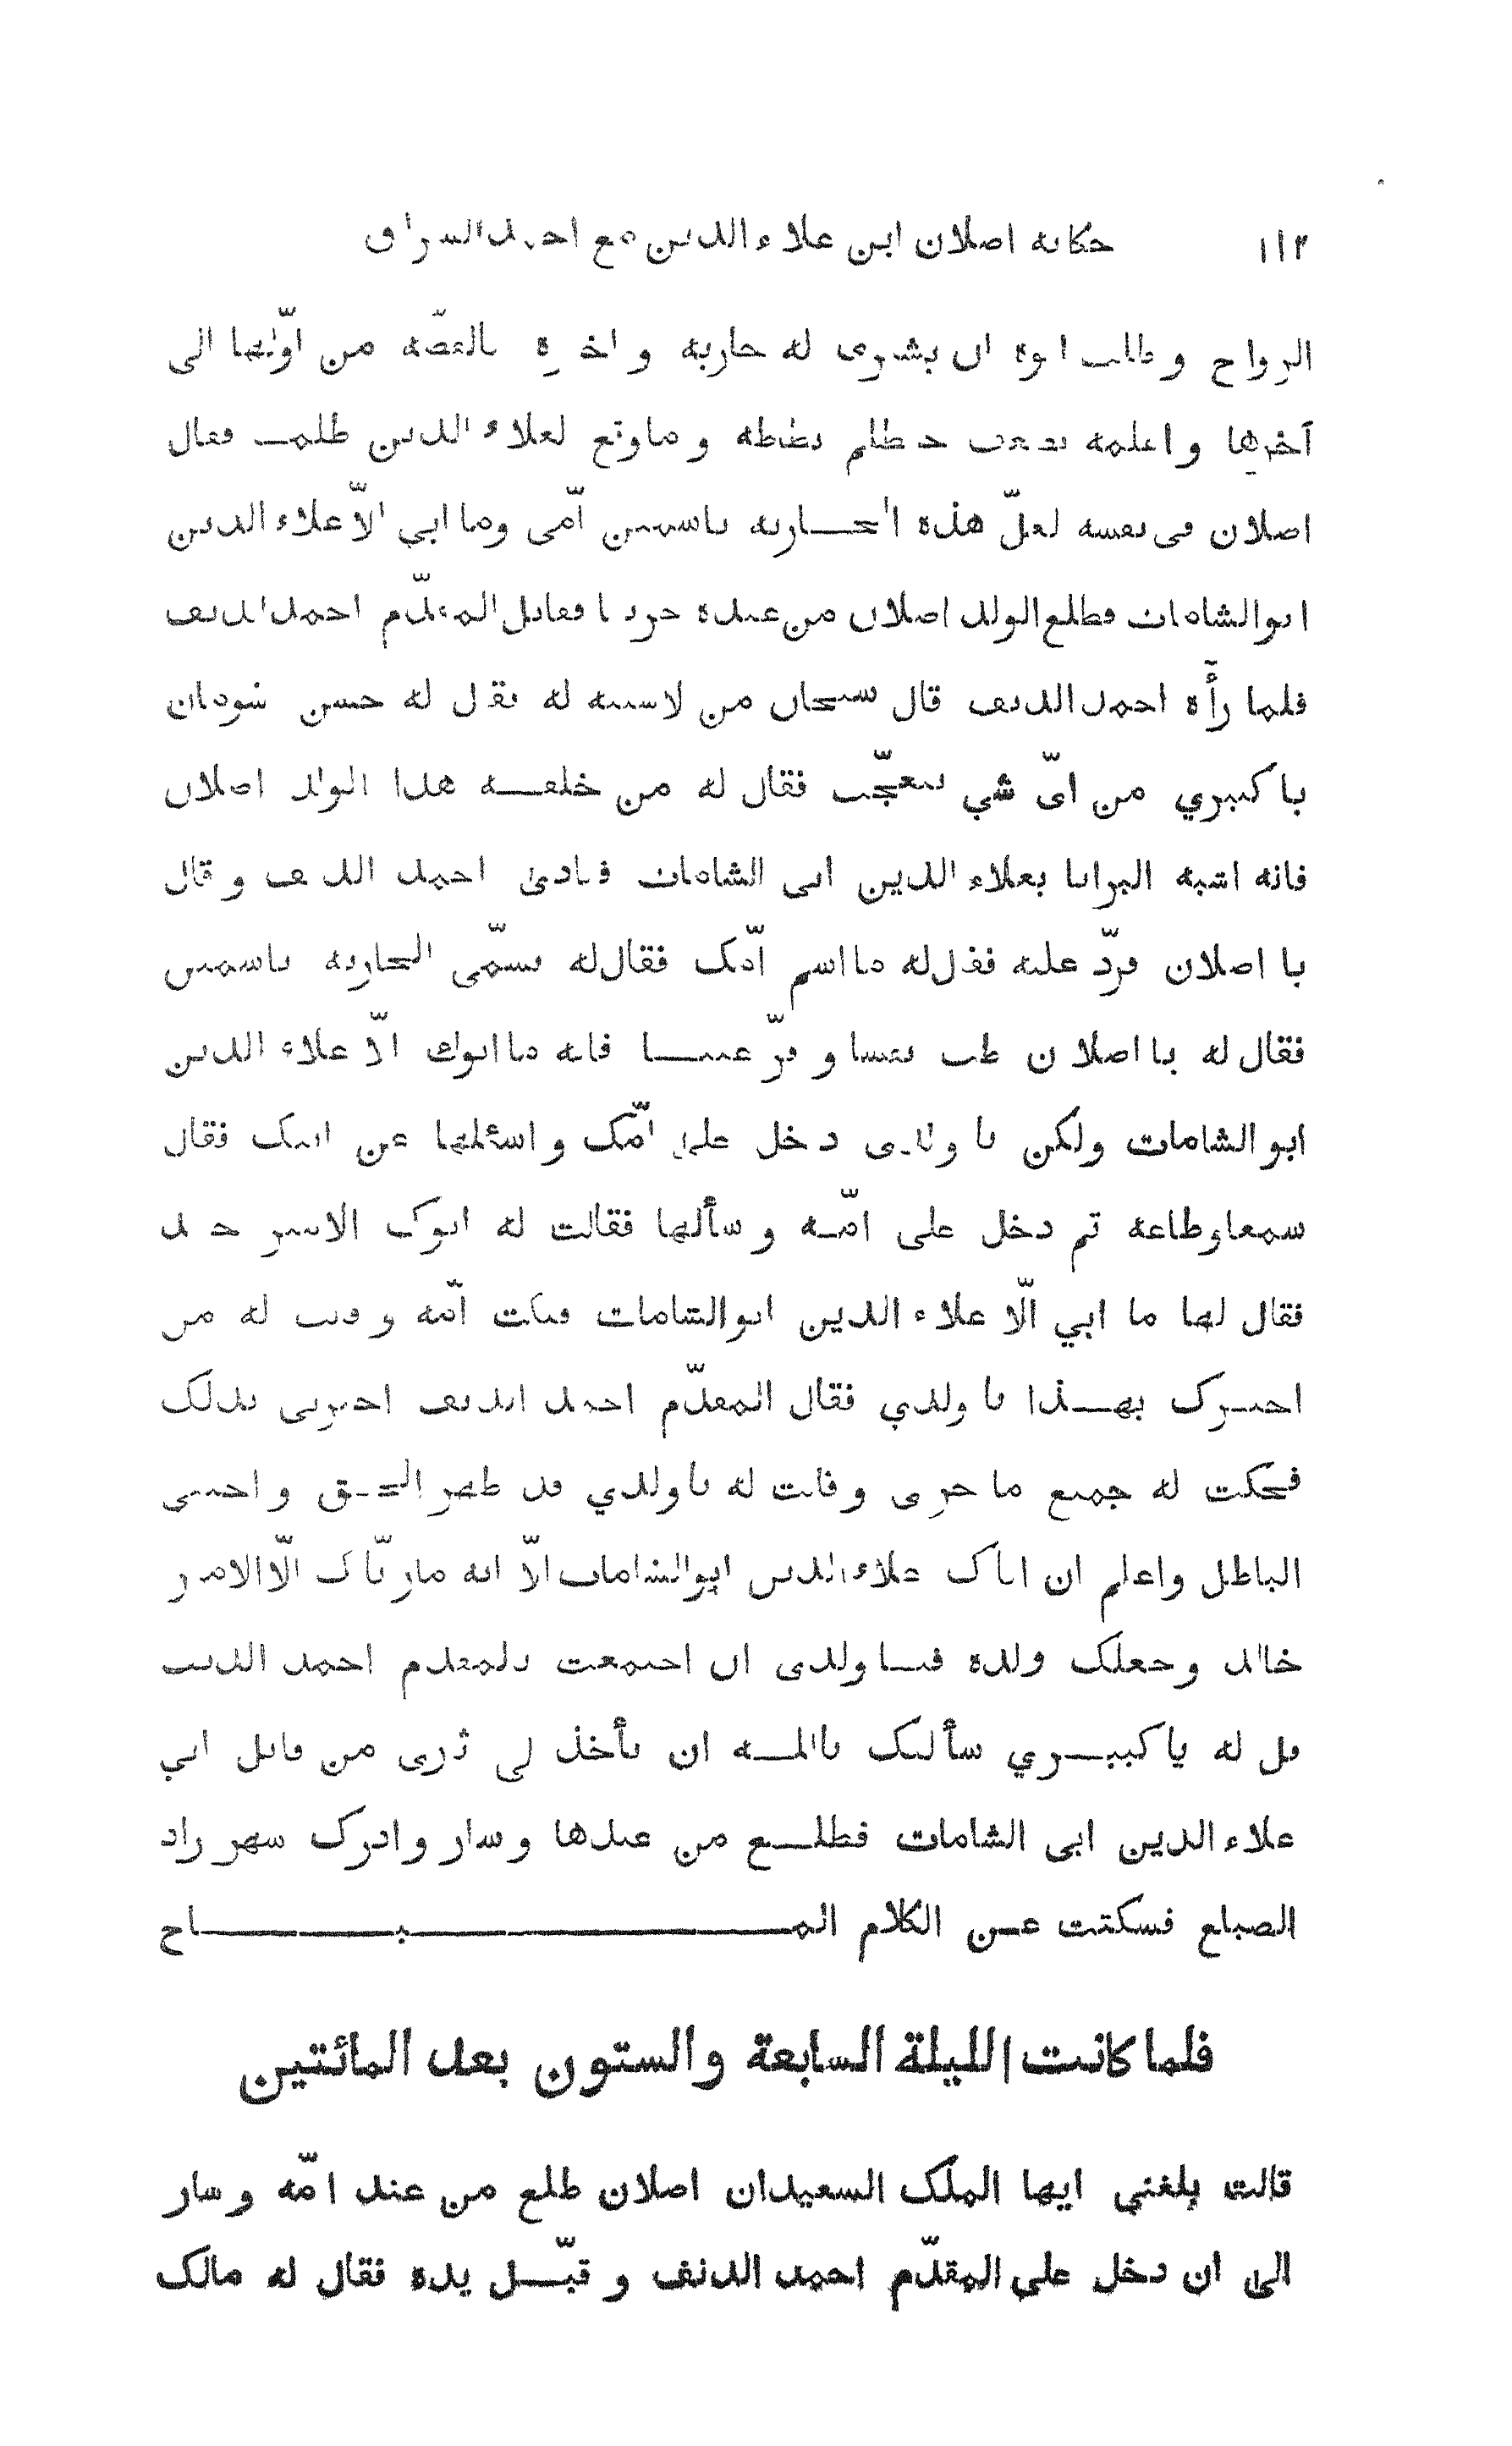 ١١٢ حكاية اصلان ابن علاء الدين مع احمد السراق
الرواح وطلب ابوه ان يشتري له جارية واخبره بالقصّة من اوّلها الى
آخرها واعلمه بضعف حبظلم بظاظه وماوقع لعلاء الدين ظلمـا فقال
اصلان في نفسه لعلّ هذه الجـــارية ياسمين اُمّي وما ابي الّا علاء الدين
ابو الشامات فطلع الولد اصلان من عنده حزينا فقابل المقدّم احمد الدنف
فلما رأٓه احمد الدنف قال سبحان من لا شبيه له فقال له حسن شومان
يا كبيري من ايّ شي تتعجّب فقال له من خلقـــة هذا الولد اصلان
فانه اشبه البرايا بعلاء الدين ابي الشامات فنادى احمد الدنف وقال
يا اصلان فردّ عليه فقال له ما اسم اُمّك فقال له تسمّى الجارية ياسمين
فقال له يا اصلان طب نفسا وقرّ عينـــا فانه ما ابوك الّا علاء الدين
ابو الشامات ولكن يا ولدي ادخل على اُمّك واسئلها عن ابيك فقال
سمعا وطاعة ثم دخل على امّـه وسألها فقالت له ابوك الامير خالد
فقال لها ما ابي الّا علاء الدين ابو الشامات فبكت اُمّه وقالت له من
اخبـرك بهـــذا يا ولدي فقال المقدّم احمد الدنف اخبرني بذلك
فحكت له جميع ما جرى وقالت له يا ولدي قد ظهر الحـق واختفى
الباطل واعلم ان اباك علاء الدين ابو الشامات الّا انه ماربّاك الّا الامير
خالد وجعلك ولده فيـــا ولدي ان اجتمعت بالمقدم احمد الدنف
قل له يا كبيـــري سألتك باللـــه ان تأخذ لي ثاري من قاتل ابي
علاء الدين ابي الشامات فطلـــع من عندها وسار وادرك شهر زاد
الصباع فسكتت عـن الكلام المـــــــــــبـــــــاح
فلما كانت الليلة السابعة والستون بعد المائتين
قالت بلغني ايها الملك السعيدان اصلان طلع من عند امّه وسار
الى ان دخل على المقدّم احمد الدنف وقبّـــل يده فقال له مالك